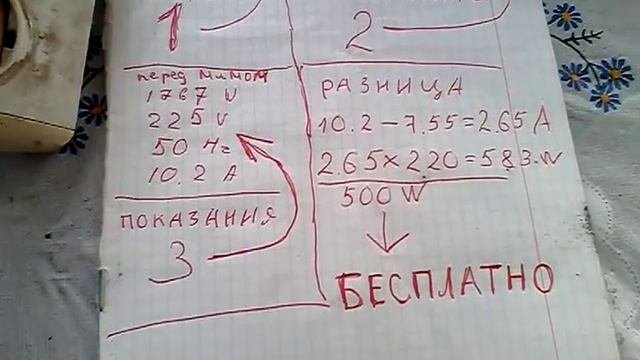 1
2
перед мммом
1767 W
225 V
50 Hz
10.2 A
ПОКАЗАНИЯ
3
РАЗНИЦА
10.2 – 7.55 = 2.65 A
2.65 × 220 = 583.W
500 W
БЕСПЛАТНО